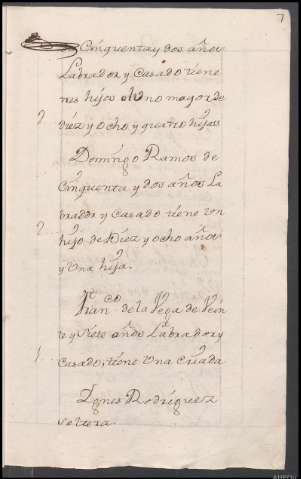 7
Cinquenta y dos años
Labrador y Casado tiene
tres hijos el Uno mayor de
2 diez y ocho y quatro hijas
Domingo Ramos de
Cinquenta y dos años La
2 brador y Casado tiene un
hijo de Diez y ocho años
y Una hija.
Franco. de la Vega de Vein
te y Siete años Labrador y
1 Casado, tiene Una Criada
Ygnes Rodriguez
soltera